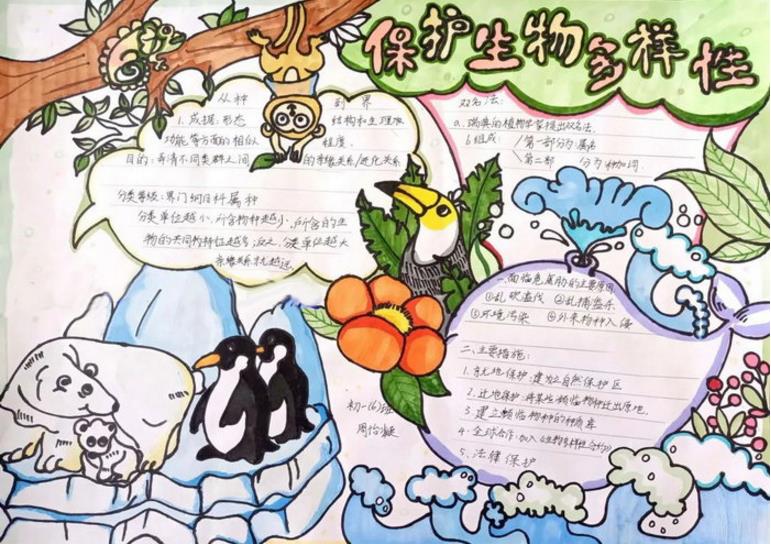 保护生物多样性
从种 到界
1.成据:形态 结构和生理
功能等方面的相似 程度.
目的:弄清不同类群之间 的亲缘关系/进化关系
分类等级:界门纲目科属种
分类单位越小,所含物种越少,所含的生
物的共同特征越多;反之,分类单位越大
亲缘关系就越远.
双名法:
a.瑞典的植物学家提出双名法.
b.组成: 第一部分为属名
第二部 分为种加词.
一.面临危威胁的主要原因
①乱砍滥伐 ②乱捕滥杀
③环境污染 ④外来物种入侵
二.主要措施:
1.就地保护:建立自然保护区
2.迁地保护:将某些濒临物种迁出原地.
3.建立濒临物种的种质库
4.全球合作:加入《生物多样性公约》
5.法律保护
初一(6)班
周怡